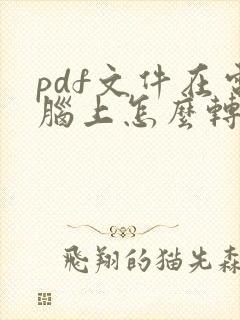 pdf文件在電
腦上怎麼轉
飛翔的猫先森